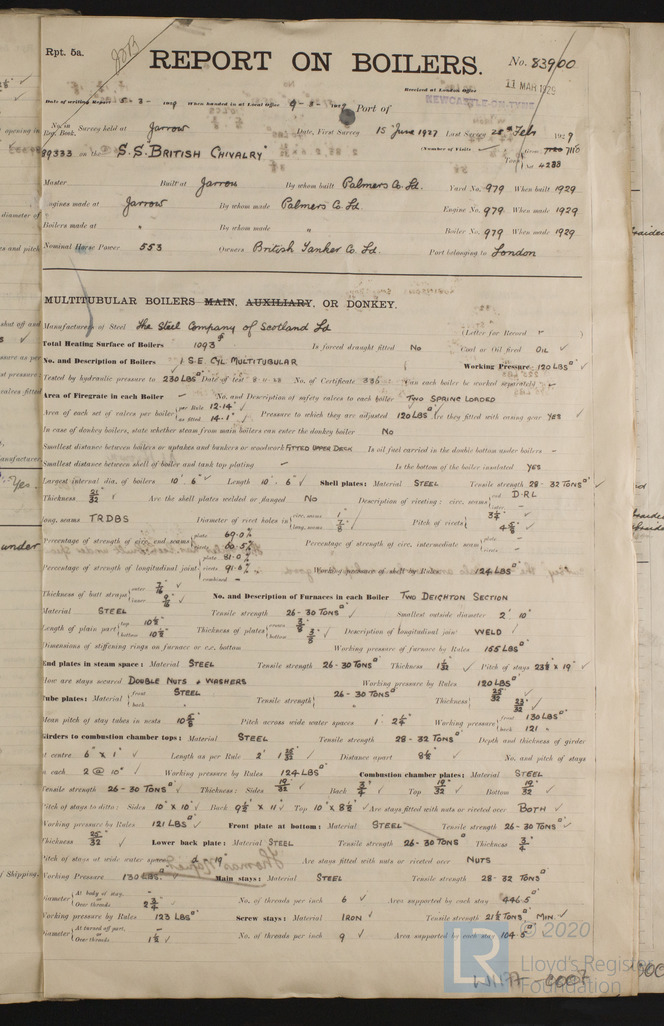 Rpt. 5a.
REPORT ON BOILERS.
No. 83900
Received at London Office 11 MAR 1929
Date of writing Report 5-3-1929 When handed in at Local Office 9-3-1929 Port of NEWCASTLE-ON-TYNE
No. in Reg. Book. Survey held at Jarrow Date, First Survey 15 June 1927 Last Survey 28th Feb 1929
89333 on the S.S. BRITISH CHIVALRY (Number of Visits Gross 7110
Tons Net 4233
Master Built at Jarrow By whom built Palmers Co. Ld. Yard No. 979 When built 1929
Engines made at Jarrow By whom made Palmers Co Ld. Engine No. 979 When made 1929
Boilers made at " By whom made " Boiler No. 979 When made 1929
Nominal Horse Power 553 Owners British Tanker Co. Ld. Port belonging to London
MULTITUBULAR BOILERS MAIN, AUXILIARY, OR DONKEY.
Manufacturers of Steel The Steel Company of Scotland Ld (Letter for Record
Total Heating Surface of Boilers 1093 Is forced draught fitted No Coal or Oil fired OIL
No. and Description of Boilers 1 S.E. CYL MULTITUBULAR Working Pressure 120 LBS
Tested by hydraulic pressure to 230 LBS Date of test No. of Certificate 336 Can each boiler be worked separately
Area of Firegrate in each Boiler No. and Description of safety valves to each boiler TWO SPRING LOADED
Area of each set of valves per boiler per Rule 12.14 as fitted 14.1 Pressure to which they are adjusted 120 LBS Are they fitted with easing gear YES
In case of donkey boilers, state whether steam from main boilers can enter the donkey boiler No
Smallest distance between boilers or uptakes and bunkers or woodwork FITTED UPPER DECK Is oil fuel carried in the double bottom under boilers -
Smallest distance between shell of boiler and tank top plating - Is the bottom of the boiler insulated YES
Largest internal dia. of boilers 10' 6" Length 10' 6" Shell plates: Material STEEL Tensile strength 28-32 TONS
Thickness 21/32 Are the shell plates welded or flanged No Description of riveting: circ. seams end D.R.L
long. seams TRDBS Diameter of rivet holes in circ. seams 1" long. seams 7/8" Pitch of rivets 3 1/4" 4 5/8"
Percentage of strength of circ. end seams plate 69.0 rivets 60.5 Percentage of strength of circ. intermediate seam plate - rivets -
Percentage of strength of longitudinal joint plate 81.0 rivets 91.6 combined - Working pressure of shell by Rules 124 LBS
Thickness of butt straps outer 7/16 inner 9/16 No. and Description of Furnaces in each Boiler TWO DEIGHTON SECTION
Material STEEL Tensile strength 26-30 TONS Smallest outside diameter 2' 10"
Length of plain part top 10 1/2" bottom 10 1/2" Thickness of plates crown 3/8 bottom 3/8 Description of longitudinal joint WELD
Dimensions of stiffening rings on furnace or c.c. bottom Working pressure of furnace by Rules 155 LBS
End plates in steam space: Material STEEL Tensile strength 26-30 TONS Thickness 1 1/32 Pitch of stays 23 1/2" x 19"
How are stays secured DOUBLE NUTS & WASHERS Working pressure by Rules 120 LBS
Tube plates: Material front STEEL back " Tensile strength 26-30 TONS Thickness 25/32 23/32
Mean pitch of stay tubes in nests 10 5/8" Pitch across wide water spaces 1' 2 1/4" Working pressure front 130 LBS back 121 "
Girders to combustion chamber tops: Material STEEL Tensile strength 28-32 TONS Depth and thickness of girder
at centre 6" x 1" Length as per Rule 2' 1 25/32" Distance apart 8 1/2" No. and pitch of stays
in each 2 @ 10" Working pressure by Rules 124 LBS Combustion chamber plates: Material STEEL
Tensile strength 26-30 TONS Thickness: Sides 19/32 Back 3/4 Top 19/32 Bottom 19/32
Pitch of stays to ditto: Sides 10" x 10" Back 9 1/2" x 11" Top 10" x 8 1/2" Are stays fitted with nuts or riveted over BOTH
Working pressure by Rules 121 LBS Front plate at bottom: Material STEEL Tensile strength 26-30 TONS
Thickness 25/32 Lower back plate: Material STEEL Tensile strength 26-30 TONS Thickness 3/4
Pitch of stays at wide water space x 19" Are stays fitted with nuts or riveted over NUTS
Working Pressure 130 LBS Main stays: Material STEEL Tensile strength 28-32 TONS
Diameter At body of stay, - Over threads 2 3/4" No. of threads per inch 6 Area supported by each stay 446.5
Working pressure by Rules 123 LBS Screw stays: Material IRON Tensile strength 21 1/2 TONS MIN.
Diameter At turned off part, - Over threads 1 1/2" No. of threads per inch 9 Area supported by each stay 104.5
© 2020
LR Lloyd's Register
Foundation